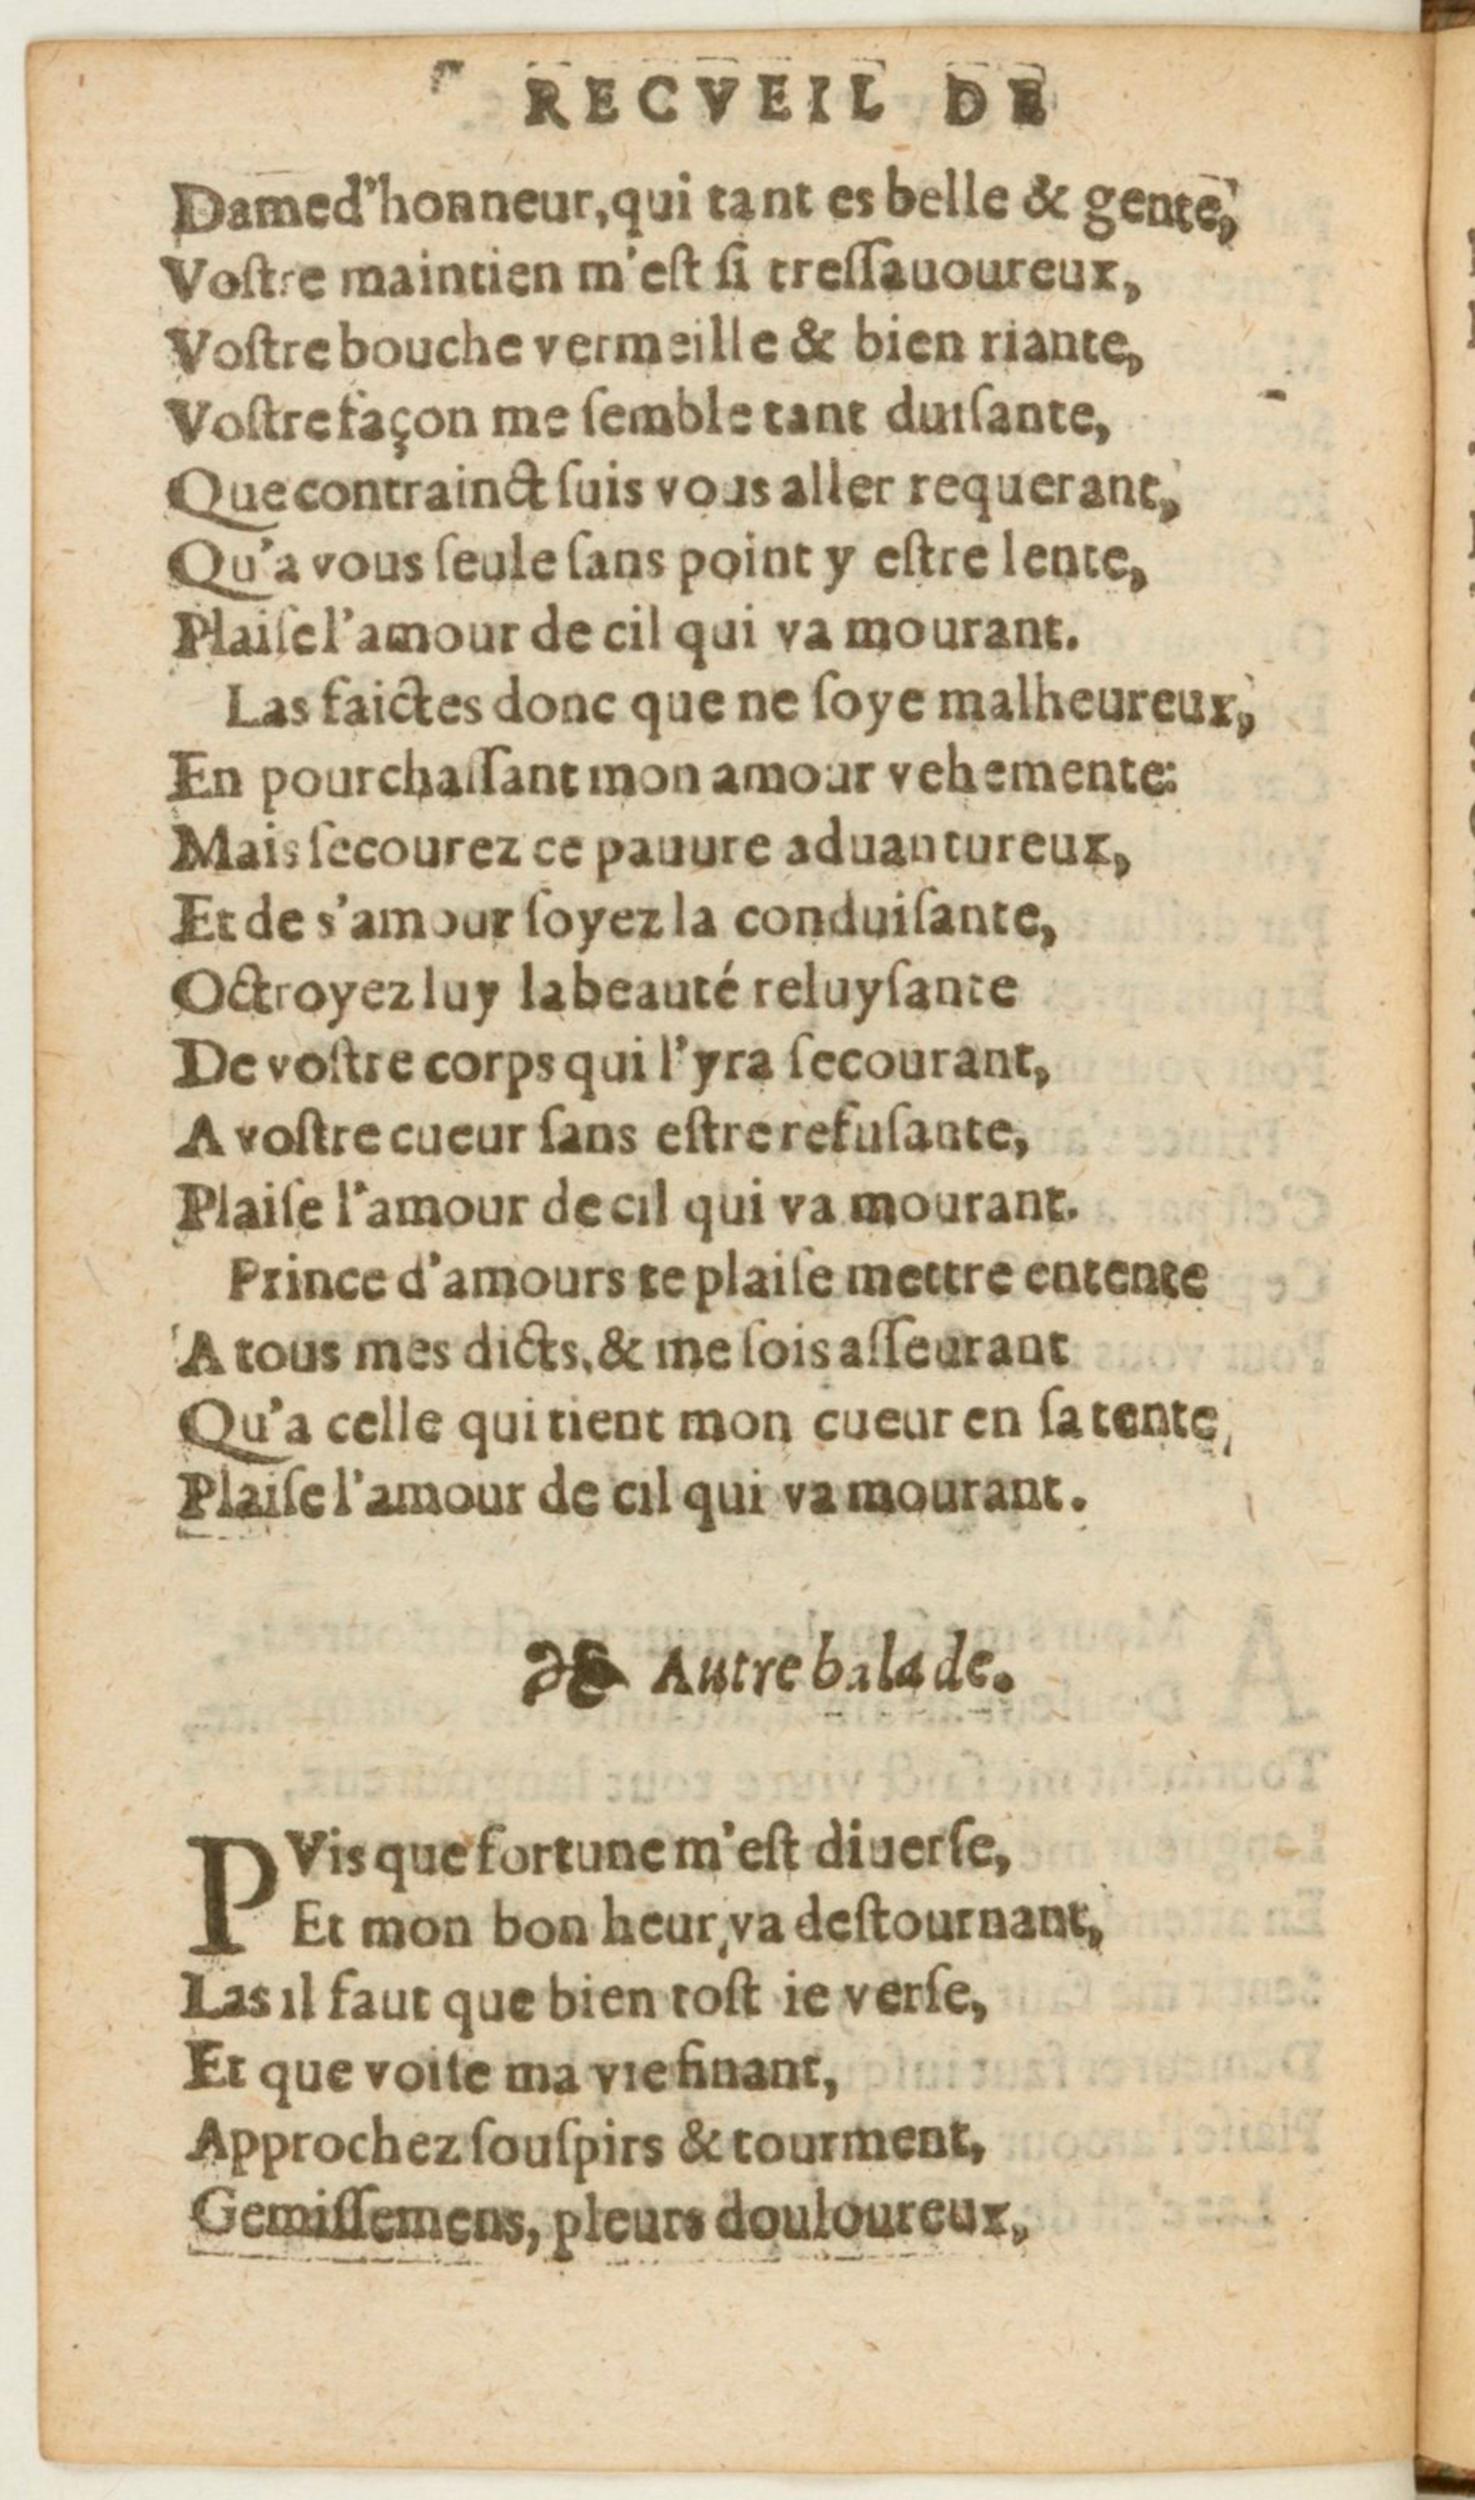 RECVEIL DE
Dame d'honneur, qui tant es belle & gente,
Voſtre maintien m'eſt ſi treſſauoureux,
Voſtre bouche vermeille & bien riante,
Voſtre façon me ſemble tant duiſante,
Que contrainct ſuis vous aller requerant,
Qu'a vous ſeule ſans point y eſtre lente,
Plaiſe l'amour de cil qui va mourant.
Las faictes donc que ne ſoye malheureux,
En pourchaſſant mon amour vehemente:
Mais ſecourez ce pauure aduantureux,
Et de s'amour ſoyez la conduiſante,
Octroyez luy la beauté reluyſante
De voſtre corps qui l'yra ſecourant,
A voſtre cueur ſans eſtre refuſante,
Plaiſe l'amour de cil qui va mourant.
Prince d'amours te plaiſe mettre entente
A tous mes dicts, & me ſois aſſeurant
Qu'a celle qui tient mon cueur en ſa tente,
Plaiſe l'amour de cil qui va mourant.
Autre balade.
PVis que fortune m'eſt diuerſe,
Et mon bon heur, va deſtournant,
Las il faut que bien toſt ie verſe,
Et que voiſe ma vie finant,
Approchez ſouſpirs & tourment,
Gemiſſemens, pleurs douloureux,